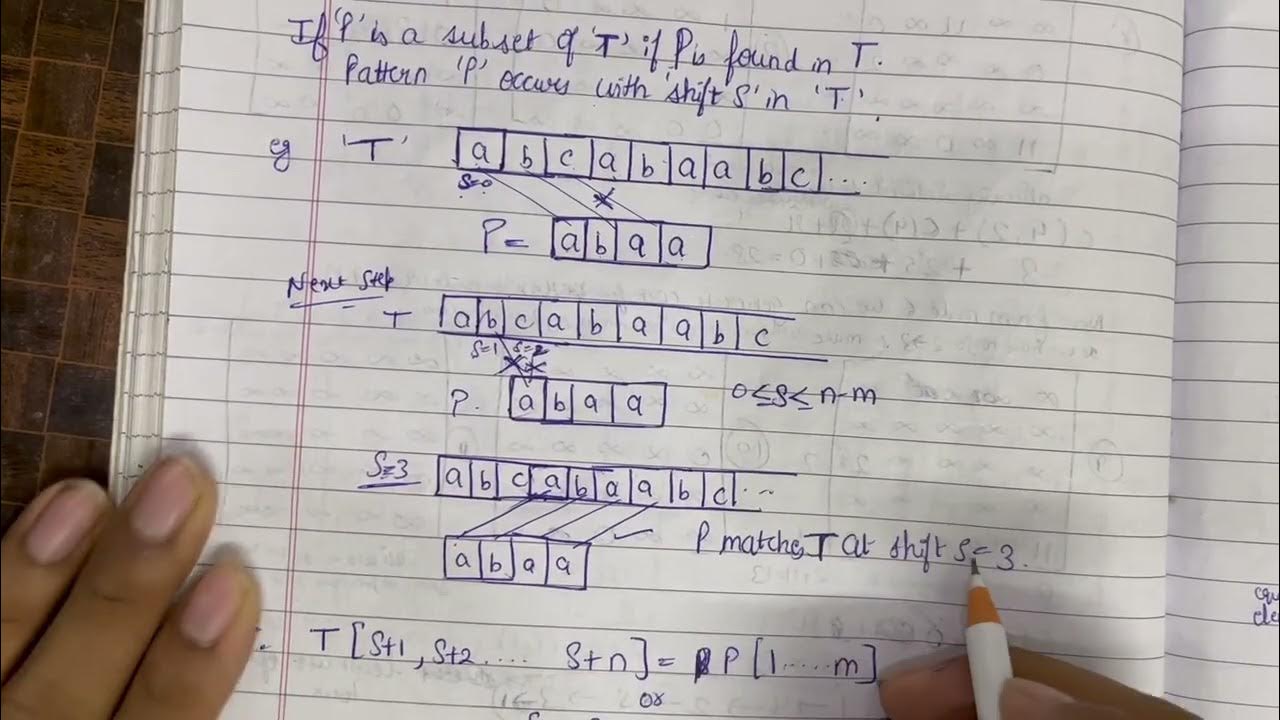 If 'P' is a subset of 'T' if P is found in T.
Pattern 'P' occurs with 'shift S' in 'T'.
eg 'T' a b c a b a a b c ...
S=0
P = a b a a
Next Step
T a b c a b a a b c
S=1 S=2
P. a b a a 0≤S≤n-m
S=3 a b c a b a a b c ...
a b a a P matches T at shift S=3.
T[S+1, S+2 .... S+n] = P[1.....m]
or